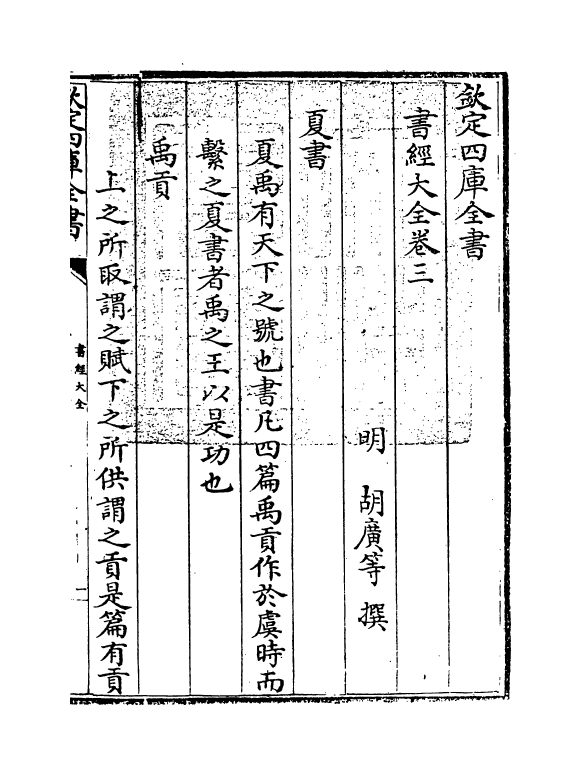 欽定四庫全書
書經大全卷三
明　胡廣等　撰
夏書
夏禹有天下之號也書凡四篇禹貢作於虞時而
繫之夏書者禹之王以是功也
禹貢
上之所取謂之賦下之所供謂之貢是篇有貢
欽定四庫全書
書經大全
一